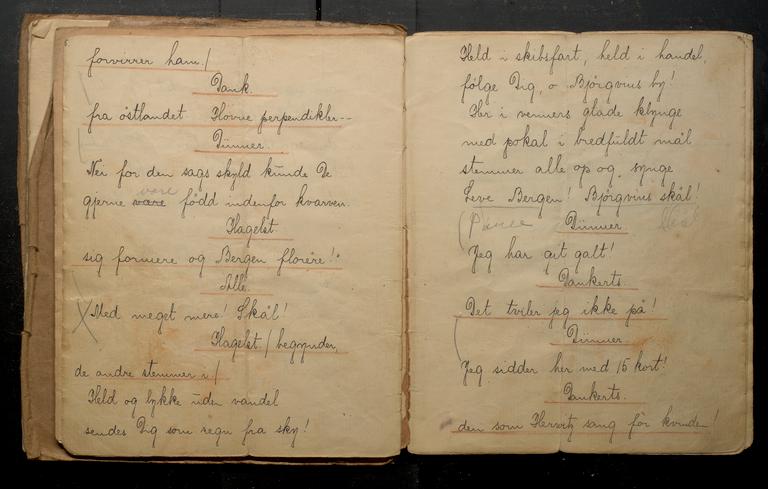 forvirrer ham./
Dank.
fra östlandet Hovne perpendikler--
Dünner.
Nei for den sags skyld kunde De
være
gjerne være född indenfor kvarven.
Hagelst.
sig formere og Bergen florere!"
Alle.
Med meget mere! Skål!
Hagelst. / begynder,
de andre stemmer i /
Held og lykke uden vandel
sendes Dig som regn fra sky!
Held i skibsfart, held i handel,
fölge Dig, o Bjørgvins by!
Her i venners glade klynge
med pokal i bredfuldt mål
stemmer alle op og synge
Leve Bergen! Bjørgvins skål!
Pause
Dünner.
Jeg har git galt!
Dankerts.
Det tviler jeg ikke på!
Dünner.
Jeg sidder her med 15 kort!
Dankerts.
den som Herwitz sang for kvinden!